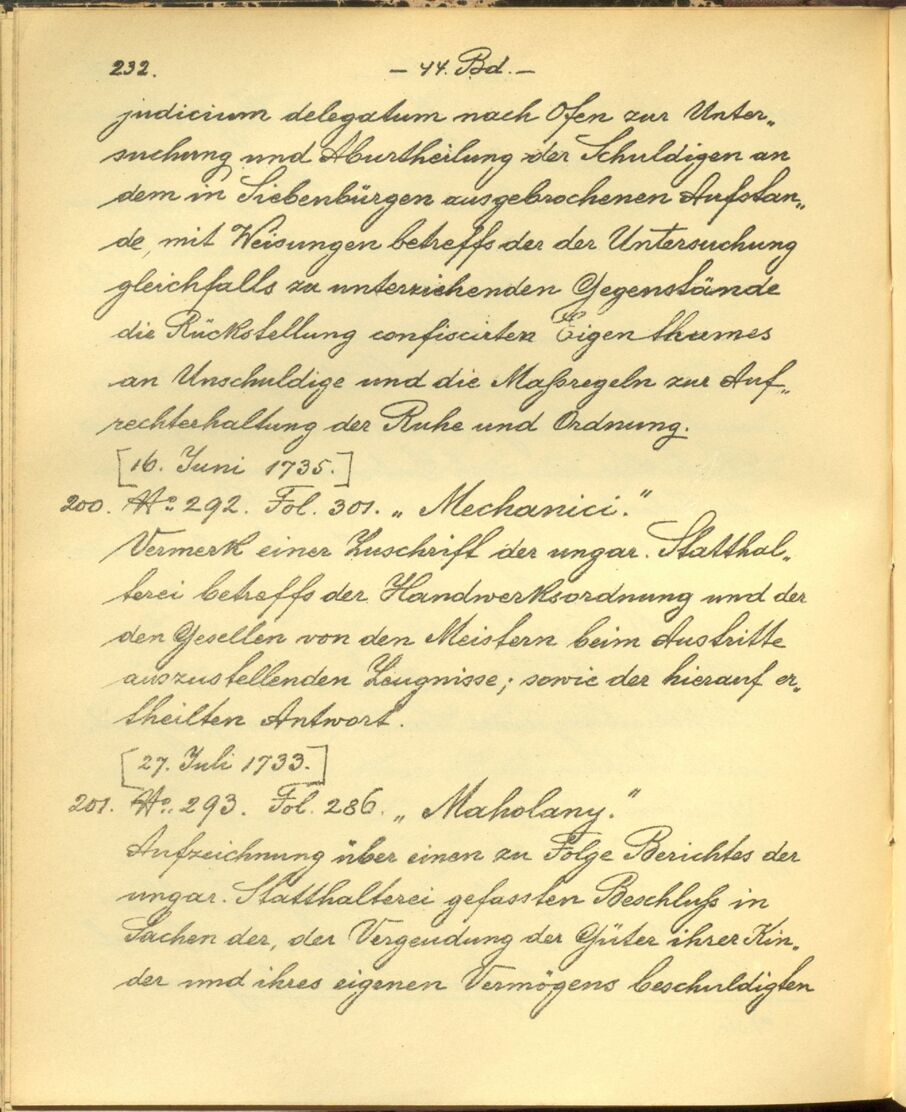 232. — 44. Bd. —
judicium delegatum nach Ofen zur Unter„
suchung und Aburtheilung der Schuldigen an
dem in Siebenbürgen ausgebrochenen Aufstan„
de, mit Weisungen betreffs der der Untersuchung
gleichfalls zu unterziehenden Gegenstände
die Rückstellung confiscirten Eigenthumes
an Unschuldige und die Maßregeln zur Auf„
rechterhaltung der Ruhe und Ordnung.
[16. Juni 1735.]
200. No 292. Fol. 301. „Mechanici.“
Vermerk einer Zuschrift der ungar. Statthal„
terei betreffs der Handwerksordnung und der
den Gesellen von den Meistern beim Austritte
auszustellenden Zeugnisse; sowie der hierauf er„
theilten Antwort.
[27. Juli 1733.]
201. No. 293. Fol. 286. „Maholany.“
Aufzeichnung über einen zu Folge Berichtes der
ungar. Statthalterei gefassten Beschluß in
Sachen der, der Vergeudung der Güter ihrer Kin„
der und ihres eigenen Vermögens beschuldigten